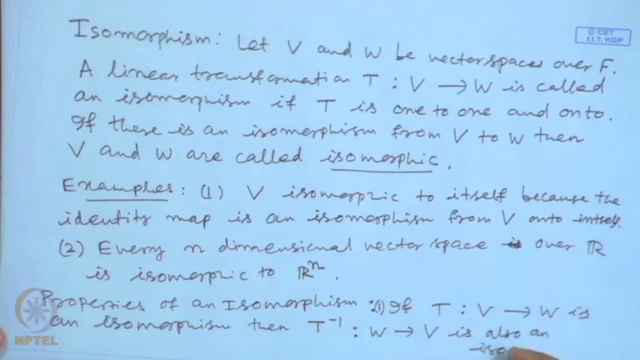 © CET
I.I.T. KGP
Isomorphism: Let V and W be vector spaces over F.
A linear transformation T : V → W is called
an isomorphism if T is one to one and onto.
If there is an isomorphism from V to W then
V and W are called isomorphic.
Examples: (1) V isomorphic to itself because the
identity map is an isomorphism from V onto intself.
(2) Every n dimensional vector space over ℝ
is isomorphic to ℝⁿ.
Properties of an Isomorphism: (1) If T : V → W is
an isomorphism then T⁻¹ : W → V is also an
iso
NPTEL